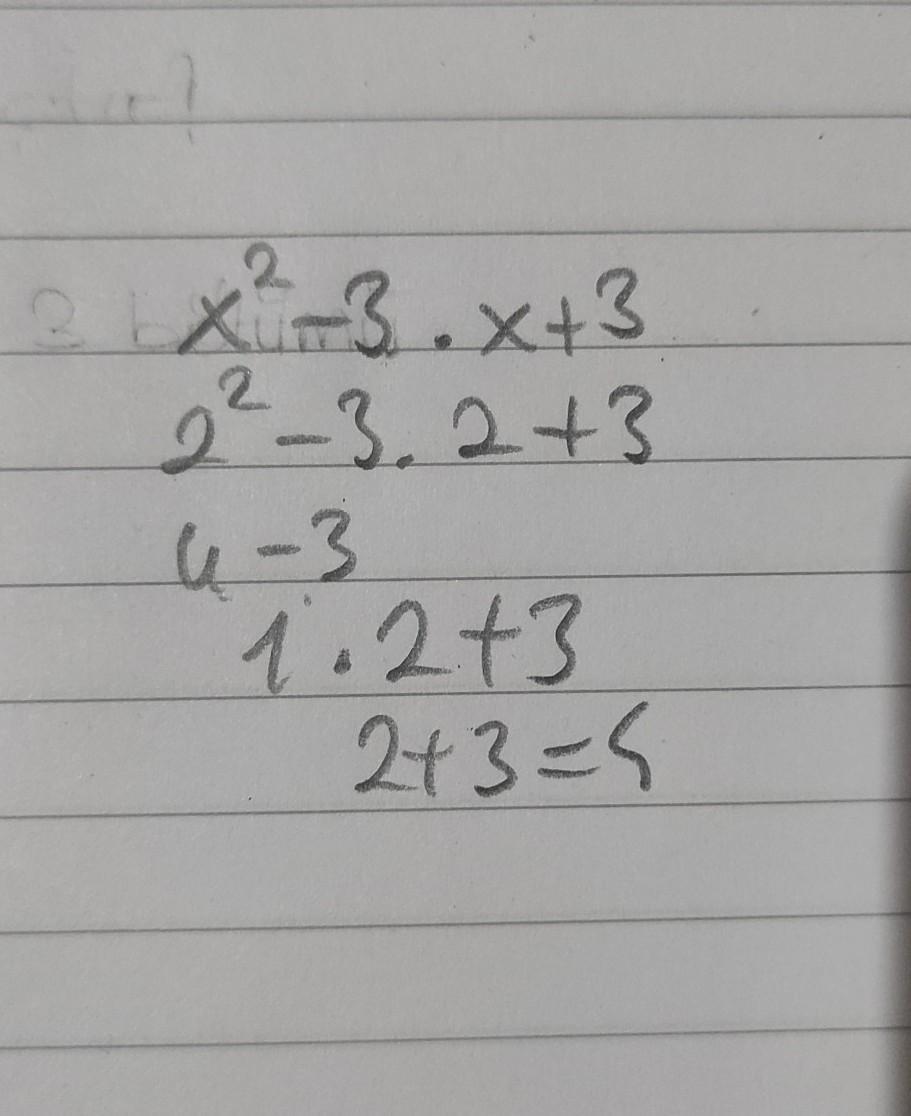 x² - 3 . x + 3
2² - 3 . 2 + 3
4 - 3
1 . 2 + 3
2 + 3 = 5